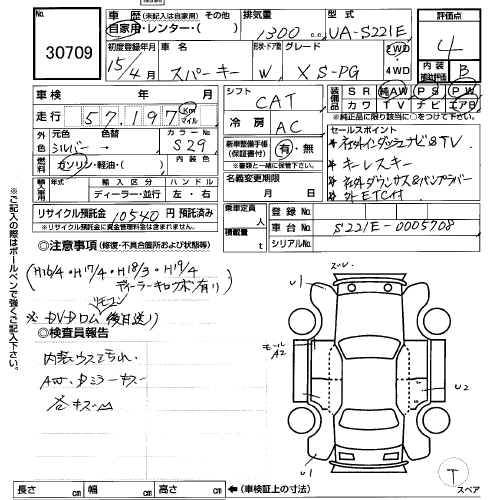 No.
30709
車歴 (未記入は自家用) その他
自家用・レンター・( )
排気量
1300 cc
型式
UA-S221E
評価点
4
初度登録年月
15/4月
車名
スパーキー
形状・ドア数
W
グレード
X S-PG
2WD
4WD
内装
補助評価
B
車検 年 月
走行 57,197 Km マイル
シフト
CAT
装備品
SR 純AW PS PW
カワ TV ナビ エアB
*純正品に限り該当に○をして下さい。
外色
元色
シルバー →
色替
カラーNo.
S29
冷房
AC
燃料
ガソリン・軽油・( )
内装色
新車整備手帳
(保証書付)
有・無
*書類と一緒に保管して下さい。
セールスポイント
*社外インダッシュナビ&TV
*キーレスキー
*社外ダウンサス&バンプラバー
*社外ETC付
輸入車用
年式
輸入区分
ディーラー・並行
ハンドル
左・右
名義変更期限
月 日
リサイクル預託金 10540 円 預託済み
*リサイクル預託金に資金管理料金は含まれません。
乗車定員 人
積載量 t
登録No.
車台No. S221E-0005708
シリアルNo.
◎注意事項 (修復・不具合箇所および状態等)
(H16/4・H17/4・H18/3・H19/4
ディーラーキロクボ有り)
リモコン
*DVDロム 後日送り)
◎検査員報告
内装ウスヨゴレ
AW・Dミラーキズ
各キズ凹
*ご記入の際はボールペンで強くご記入下さい。
スレ
U1
モール
A2
U2
U1
T
スペア
長さ cm 幅 cm 高さ cm ←(車検証上の寸法)